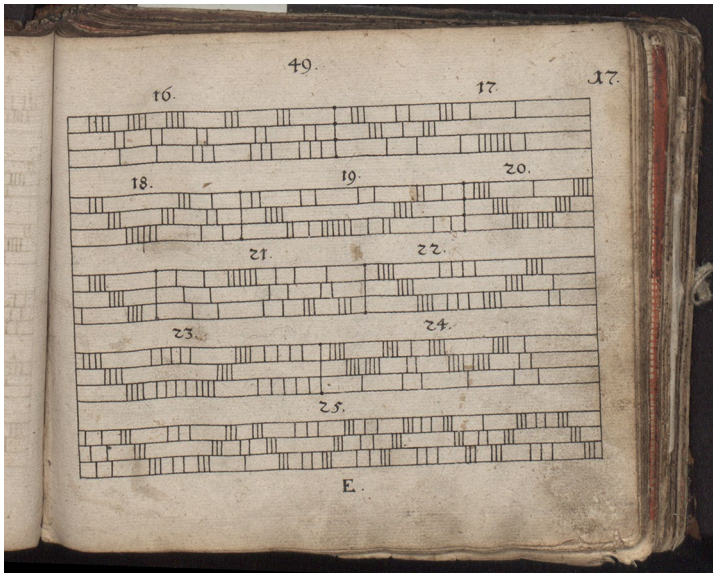 49.
17.
16. 17.
18. 19. 20.
21. 22.
23. 24.
25.
E.